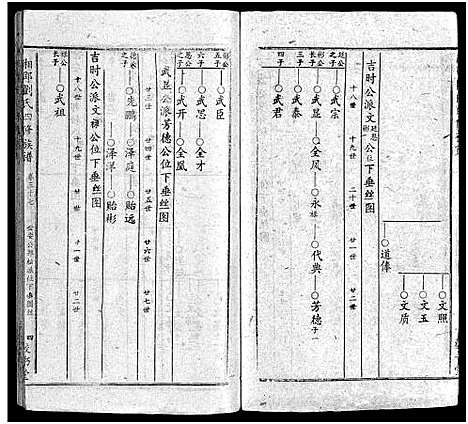 文照
文玉
文质
道俸
吉时公派廷恩彬公位下垂丝图
十八世 十九世 二十世 廿一世 廿二世
长子 武宗
武泰
武显 全凤 永禄 代典 芳德 子一
四子 武君
武臣
六子 武忠 全才
之子 武开 全凰
武显公派芳德公位下垂丝图
廿三世 廿四世 廿五世 廿六世 廿七世
之子 先鹏 泽庭 贻远
泽洋 贻彬
吉时公派文祥公位下垂丝图
十八世 十九世 二十世 廿一世 廿二世
长子 武祖
湘乡刘氏四修族谱 卷三十七